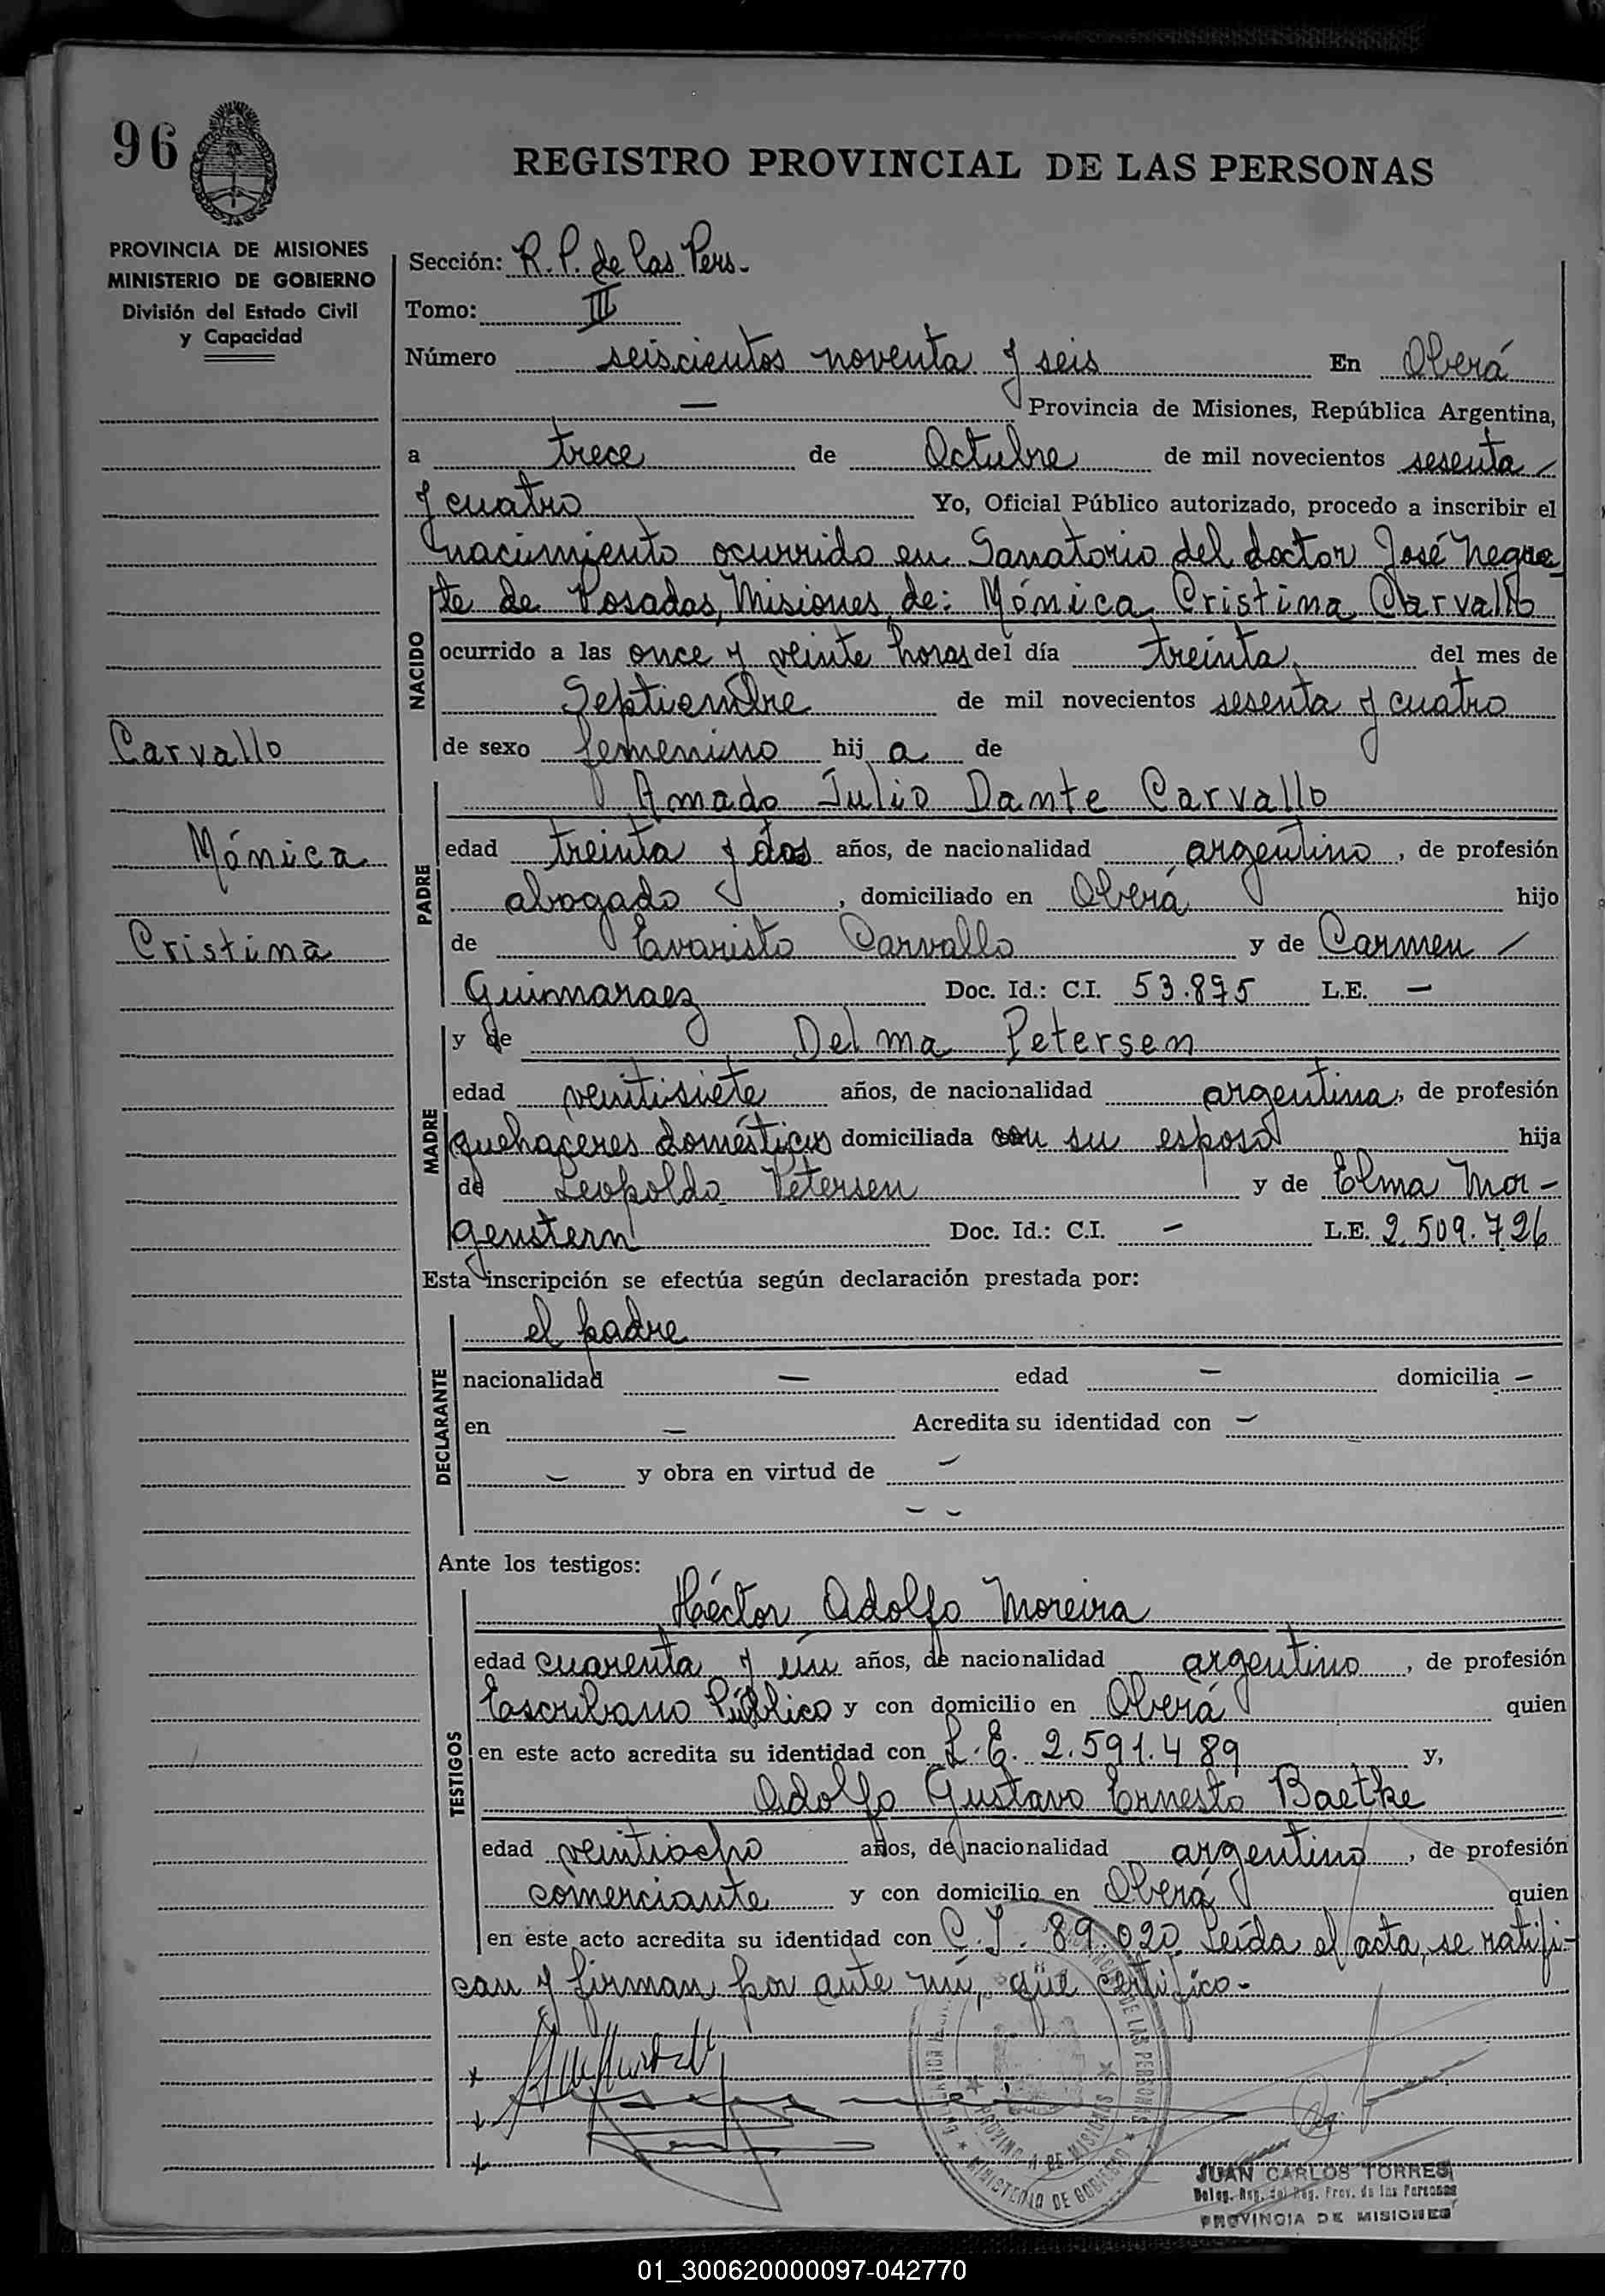 96
REGISTRO PROVINCIAL DE LAS PERSONAS
PROVINCIA DE MISIONES
MINISTERIO DE GOBIERNO
División del Estado Civil
y Capacidad
Sección: R. P. de las Pers.
Tomo: III
Número seiscientos noventa y seis En Oberá
— Provincia de Misiones, República Argentina,
a trece de Octubre de mil novecientos sesenta
y cuatro Yo, Oficial Público autorizado, procedo a inscribir el
nacimiento ocurrido en Sanatorio del doctor José Negre
te de Posadas, Misiones, de: Mónica Cristina Carvallo
NACIDO
ocurrido a las once y veinte horas del día treinta del mes de
Septiembre de mil novecientos sesenta y cuatro
de sexo femenino hij a de
Carvallo
Mónica
Cristina
PADRE
Amado Julio Dante Carvallo
edad treinta y dos años, de nacionalidad argentino, de profesión
abogado, domiciliado en Oberá hijo
de Evaristo Carvallo y de Carmen
Guimaraez Doc. Id.: C.I. 53.875 L.E. —
MADRE
y de Delma Petersen
edad veintisiete años, de nacionalidad argentina, de profesión
quehaceres domésticos domiciliada con su esposo hija
de Leopoldo Petersen y de Elma Mor-
genstern Doc. Id.: C.I. — L.E. 2.509.726
Esta inscripción se efectúa según declaración prestada por:
DECLARANTE
el padre
nacionalidad — edad — domicilia —
en — Acredita su identidad con —
— y obra en virtud de —
— —
Ante los testigos:
TESTIGOS
Héctor Adolfo Moreira
edad cuarenta y un años, de nacionalidad argentino, de profesión
Escribano Público y con domicilio en Oberá quien
en este acto acredita su identidad con L.E. 2.591.489 y,
Adolfo Gustavo Ernesto Baetke
edad veintiocho años, de nacionalidad argentino, de profesión
comerciante y con domicilio en Oberá quien
en este acto acredita su identidad con C.I. 89.020. Leída el acta, se ratifi-
can y firman por ante mí, que certifico.-
DE LAS PERSONAS
PROVINCIA DE MISIONES
MINISTERIO DE GOBIERNO
JUAN CARLOS TORRES
Deleg. Reg. del Reg. Prov. de las Personas
PROVINCIA DE MISIONES
01_300620000097-042770